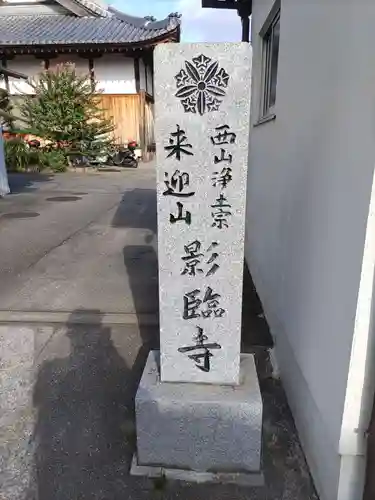 西山浄土宗
来迎山
影臨寺